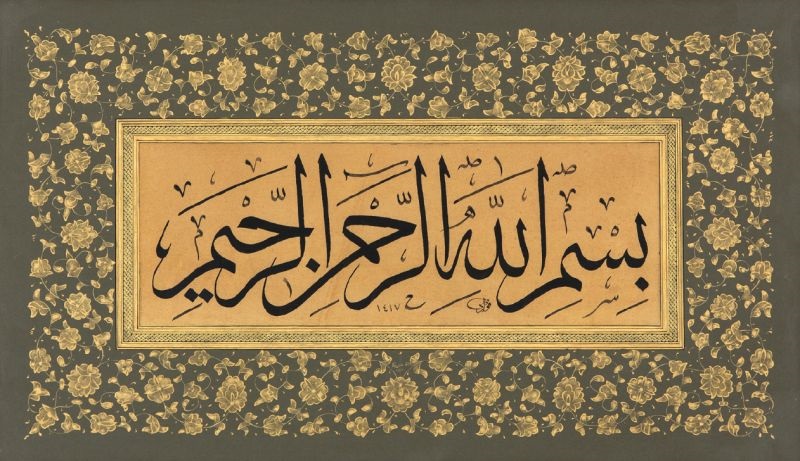 بِسْمِ اللّٰهِ الرَّحْمٰنِ الرَّحِيمِ
١٤١٧